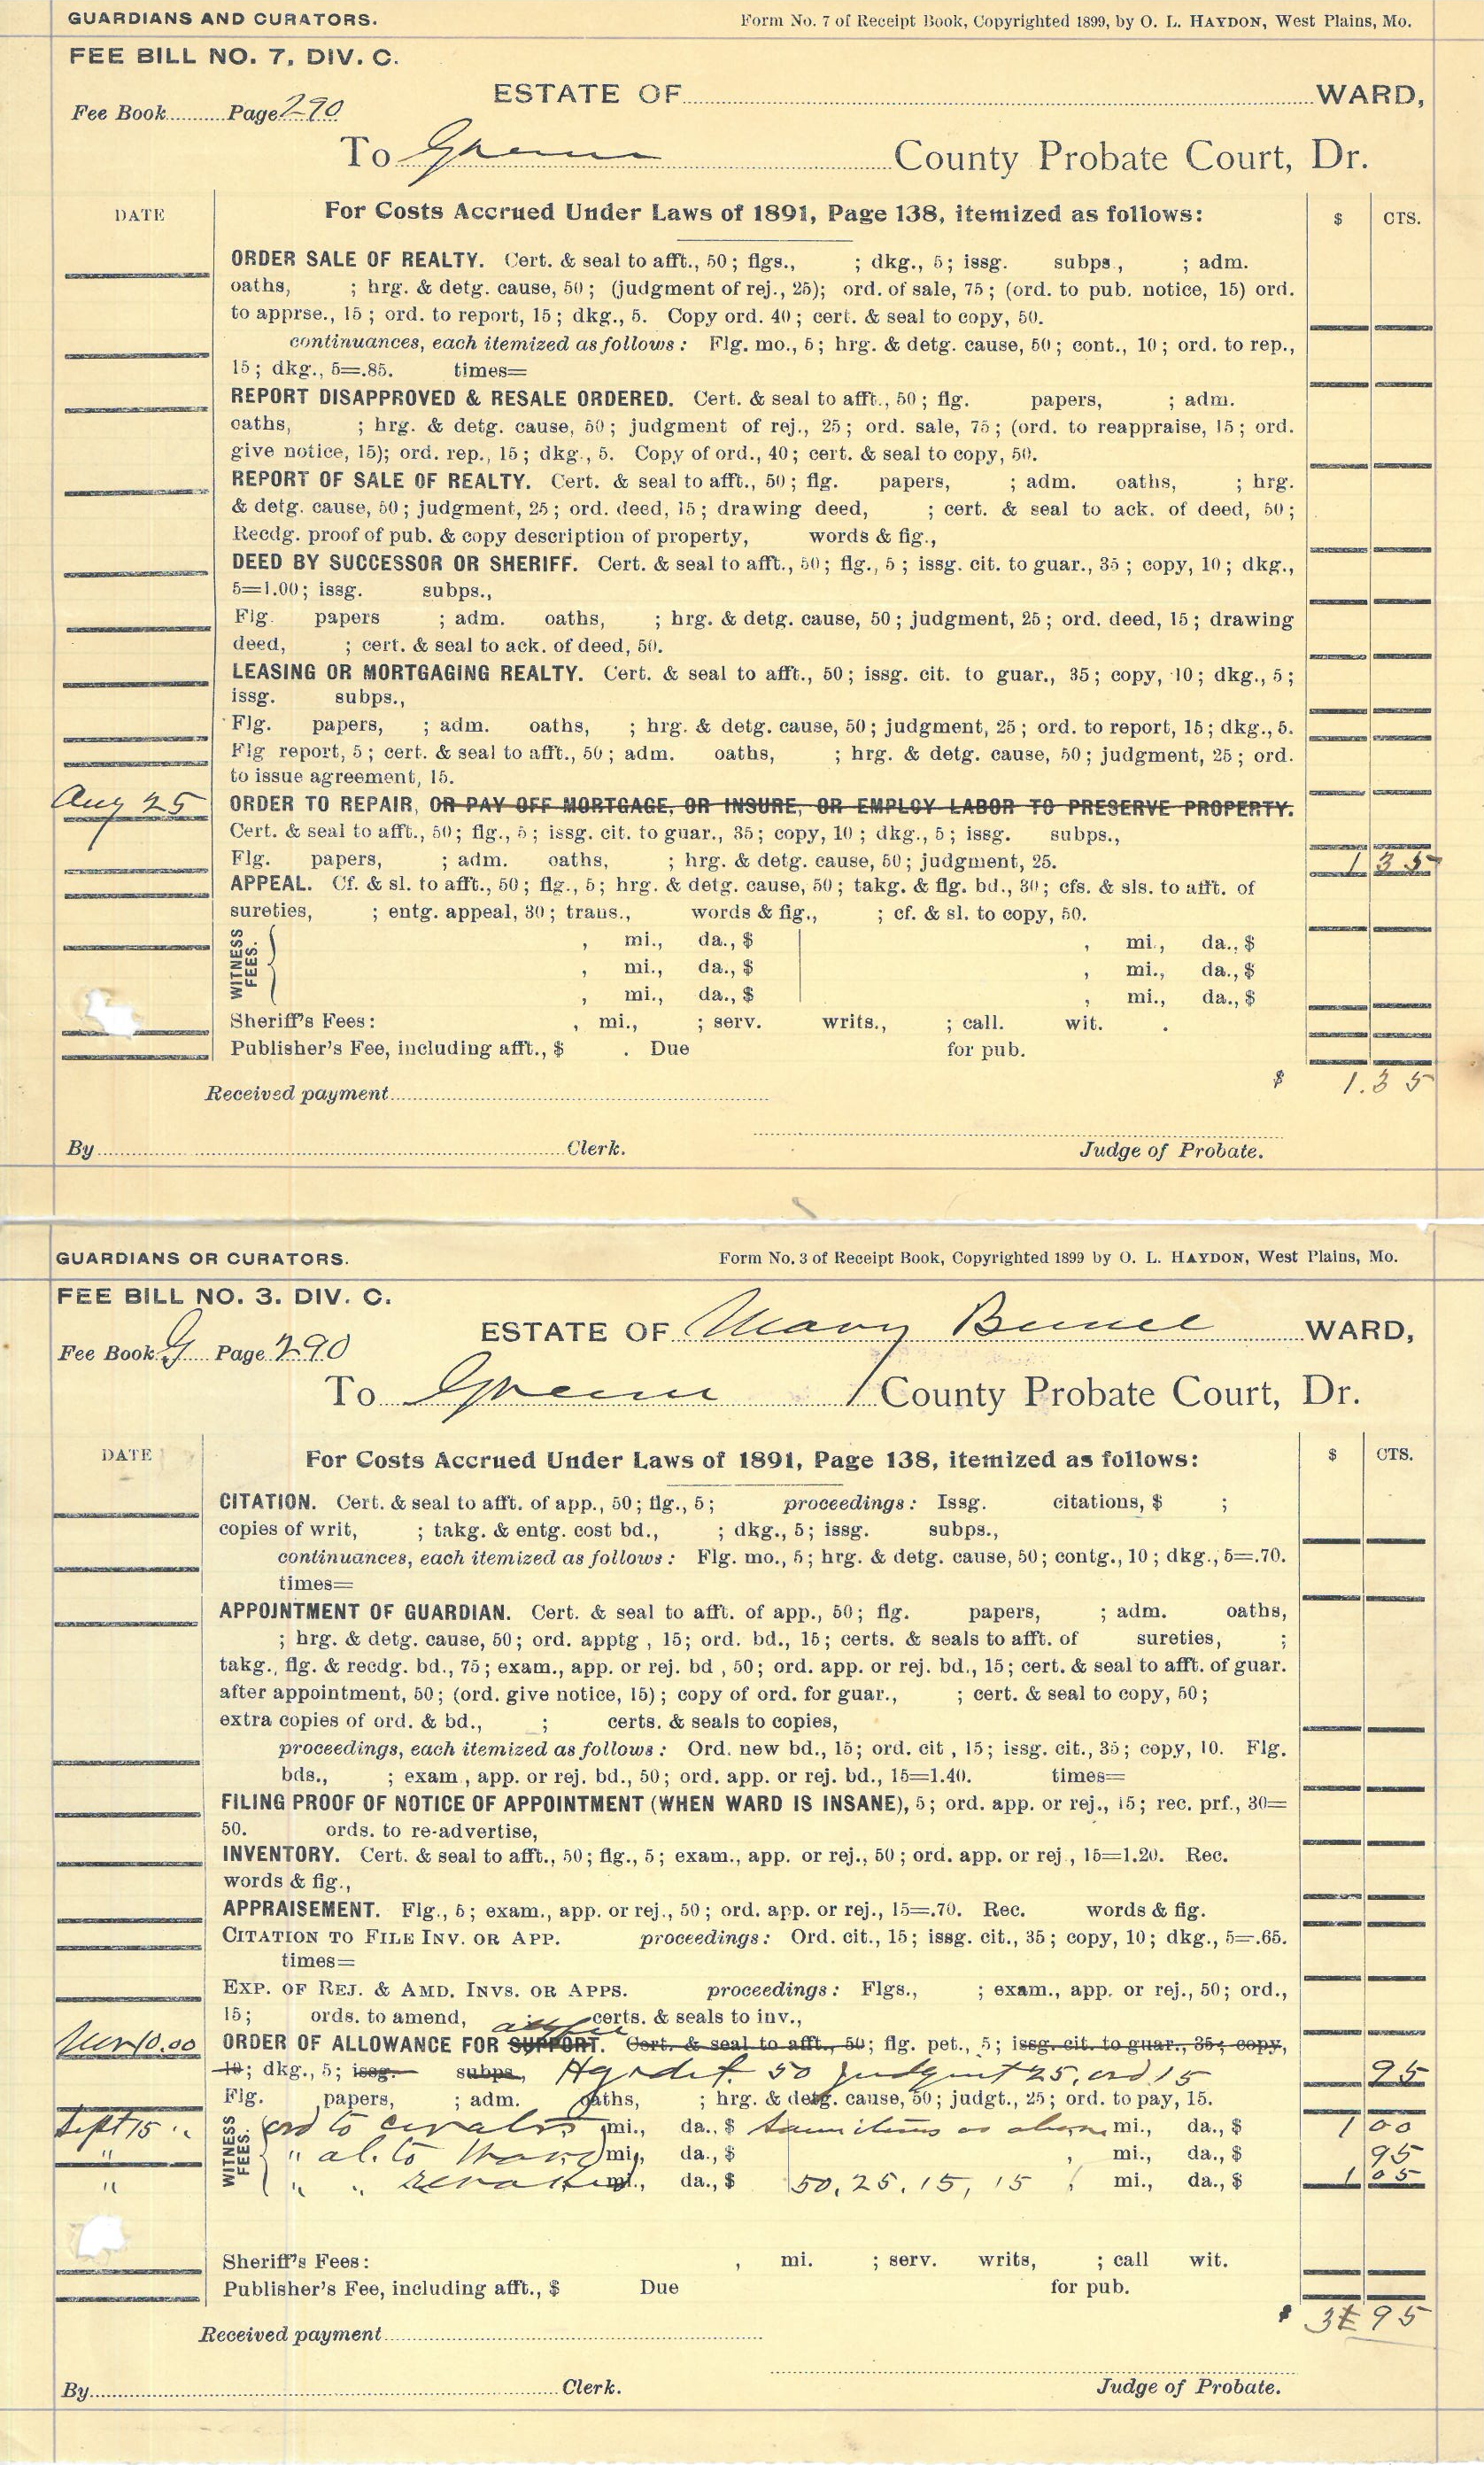 GUARDIANS AND CURATORS. Form No. 7 of Receipt Book, Copyrighted 1899, by O. L. HAYDON, West Plains, Mo.
FEE BILL NO. 7, DIV. C.
ESTATE OF WARD,
Fee Book Page 290
To Greene County Probate Court, Dr.
DATE For Costs Accrued Under Laws of 1891, Page 138, itemized as follows: $ CTS.
ORDER SALE OF REALTY. Cert. & seal to afft., 50; flgs., ; dkg., 5; issg. subps., ; adm.
oaths, ; hrg. & detg. cause, 50; (judgment of rej., 25); ord. of sale, 75; (ord. to pub. notice, 15) ord.
to apprse., 15; ord. to report, 15; dkg., 5. Copy ord. 40; cert. & seal to copy, 50.
continuances, each itemized as follows: Flg. mo., 5; hrg. & detg. cause, 50; cont., 10; ord. to rep.,
15; dkg., 5=.85. times=
REPORT DISAPPROVED & RESALE ORDERED. Cert. & seal to afft., 50; flg. papers, ; adm.
oaths, ; hrg. & detg. cause, 50; judgment of rej., 25; ord. sale, 75; (ord. to reappraise, 15; ord.
give notice, 15); ord. rep., 15; dkg., 5. Copy of ord., 40; cert. & seal to copy, 50.
REPORT OF SALE OF REALTY. Cert. & seal to afft., 50; flg. papers, ; adm. oaths, ; hrg.
& detg. cause, 50; judgment, 25; ord. deed, 15; drawing deed, ; cert. & seal to ack. of deed, 50;
Recdg. proof of pub. & copy description of property, words & fig.,
DEED BY SUCCESSOR OR SHERIFF. Cert. & seal to afft., 50; flg., 5; issg. cit. to guar., 35; copy, 10; dkg.,
5=1.00; issg. subps.,
Flg. papers ; adm. oaths, ; hrg. & detg. cause, 50; judgment, 25; ord. deed, 15; drawing
deed, ; cert. & seal to ack. of deed, 50.
LEASING OR MORTGAGING REALTY. Cert. & seal to afft., 50; issg. cit. to guar., 35; copy, 10; dkg., 5;
issg. subps.,
Flg. papers, ; adm. oaths, ; hrg. & detg. cause, 50; judgment, 25; ord. to report, 15; dkg., 5.
Flg report, 5; cert. & seal to afft., 50; adm. oaths, ; hrg. & detg. cause, 50; judgment, 25; ord.
to issue agreement, 15.
Aug 25 ORDER TO REPAIR, OR PAY OFF MORTGAGE, OR INSURE, OR EMPLOY LABOR TO PRESERVE PROPERTY.
Cert. & seal to afft., 50; flg., 5; issg. cit. to guar., 35; copy, 10; dkg., 5; issg. subps.,
Flg. papers, ; adm. oaths, ; hrg. & detg. cause, 50; judgment, 25. 1 35
APPEAL. Cf. & sl. to afft., 50; flg., 5; hrg. & detg. cause, 50; takg. & flg. bd., 30; cfs. & sls. to afft. of
sureties, ; entg. appeal, 30; trans., words & fig., ; cf. & sl. to copy, 50.
WITNESS FEES.
, mi., da., $ , mi., da., $
, mi., da., $ , mi., da., $
, mi., da., $ , mi., da., $
Sheriff's Fees: , mi., ; serv. writs., ; call. wit. .
Publisher's Fee, including afft., $ . Due for pub.
$ 1.35
Received payment
By Clerk. Judge of Probate.
GUARDIANS OR CURATORS. Form No. 3 of Receipt Book, Copyrighted 1899 by O. L. HAYDON, West Plains, Mo.
FEE BILL NO. 3. DIV. C.
ESTATE OF Mary WARD,
Fee Book G Page 290
To Greene County Probate Court, Dr.
DATE For Costs Accrued Under Laws of 1891, Page 138, itemized as follows: $ CTS.
CITATION. Cert. & seal to afft. of app., 50; flg., 5; proceedings: Issg. citations, $ ;
copies of writ, ; takg. & entg. cost bd., ; dkg., 5; issg. subps.,
continuances, each itemized as follows: Flg. mo., 5; hrg. & detg. cause, 50; contg., 10; dkg., 5=.70.
times=
APPOINTMENT OF GUARDIAN. Cert. & seal to afft. of app., 50; flg. papers, ; adm. oaths,
; hrg. & detg. cause, 50; ord. apptg , 15; ord. bd., 15; certs. & seals to afft. of sureties, ;
takg., flg. & recdg. bd., 75; exam., app. or rej. bd , 50; ord. app. or rej. bd., 15; cert. & seal to afft. of guar.
after appointment, 50; (ord. give notice, 15); copy of ord. for guar., ; cert. & seal to copy, 50;
extra copies of ord. & bd., ; certs. & seals to copies,
proceedings, each itemized as follows: Ord. new bd., 15; ord. cit , 15; issg. cit., 35; copy, 10. Flg.
bds., ; exam., app. or rej. bd., 50; ord. app. or rej. bd., 15=1.40. times=
FILING PROOF OF NOTICE OF APPOINTMENT (WHEN WARD IS INSANE), 5; ord. app. or rej., 15; rec. prf., 30=
50. ords. to re-advertise,
INVENTORY. Cert. & seal to afft., 50; flg., 5; exam., app. or rej., 50; ord. app. or rej , 15=1.20. Rec.
words & fig.,
APPRAISEMENT. Flg., 5; exam., app. or rej., 50; ord. app. or rej., 15=.70. Rec. words & fig.
CITATION TO FILE INV. OR APP. proceedings: Ord. cit., 15; issg. cit., 35; copy, 10; dkg., 5=.65.
times=
EXP. OF REJ. & AMD. INVS. OR APPS. proceedings: Flgs., ; exam., app. or rej., 50; ord.,
15; ords. to amend, certs. & seals to inv.,
10.00 ORDER OF ALLOWANCE FOR SUPPORT. Cert. & seal to afft., 50; flg. pet., 5; issg. cit. to guar., 35; copy,
10; dkg., 5; issg. subps., 50 judgment 25, ord 15 95
Flg. papers, ; adm. oaths, ; hrg. & detg. cause, 50; judgt., 25; ord. to pay, 15.
WITNESS FEES.
Sept 15 ord to curator mi., da., $ same items as above mi., da., $ 1 00
" " al. to mi., da., $ , mi., da., $ 95
" " " mi., da., $ 50, 25, 15, 15 mi., da., $ 1 05
Sheriff's Fees: , mi. ; serv. writs, ; call wit.
Publisher's Fee, including afft., $ Due for pub.
$ 3 95
Received payment
By Clerk. Judge of Probate.